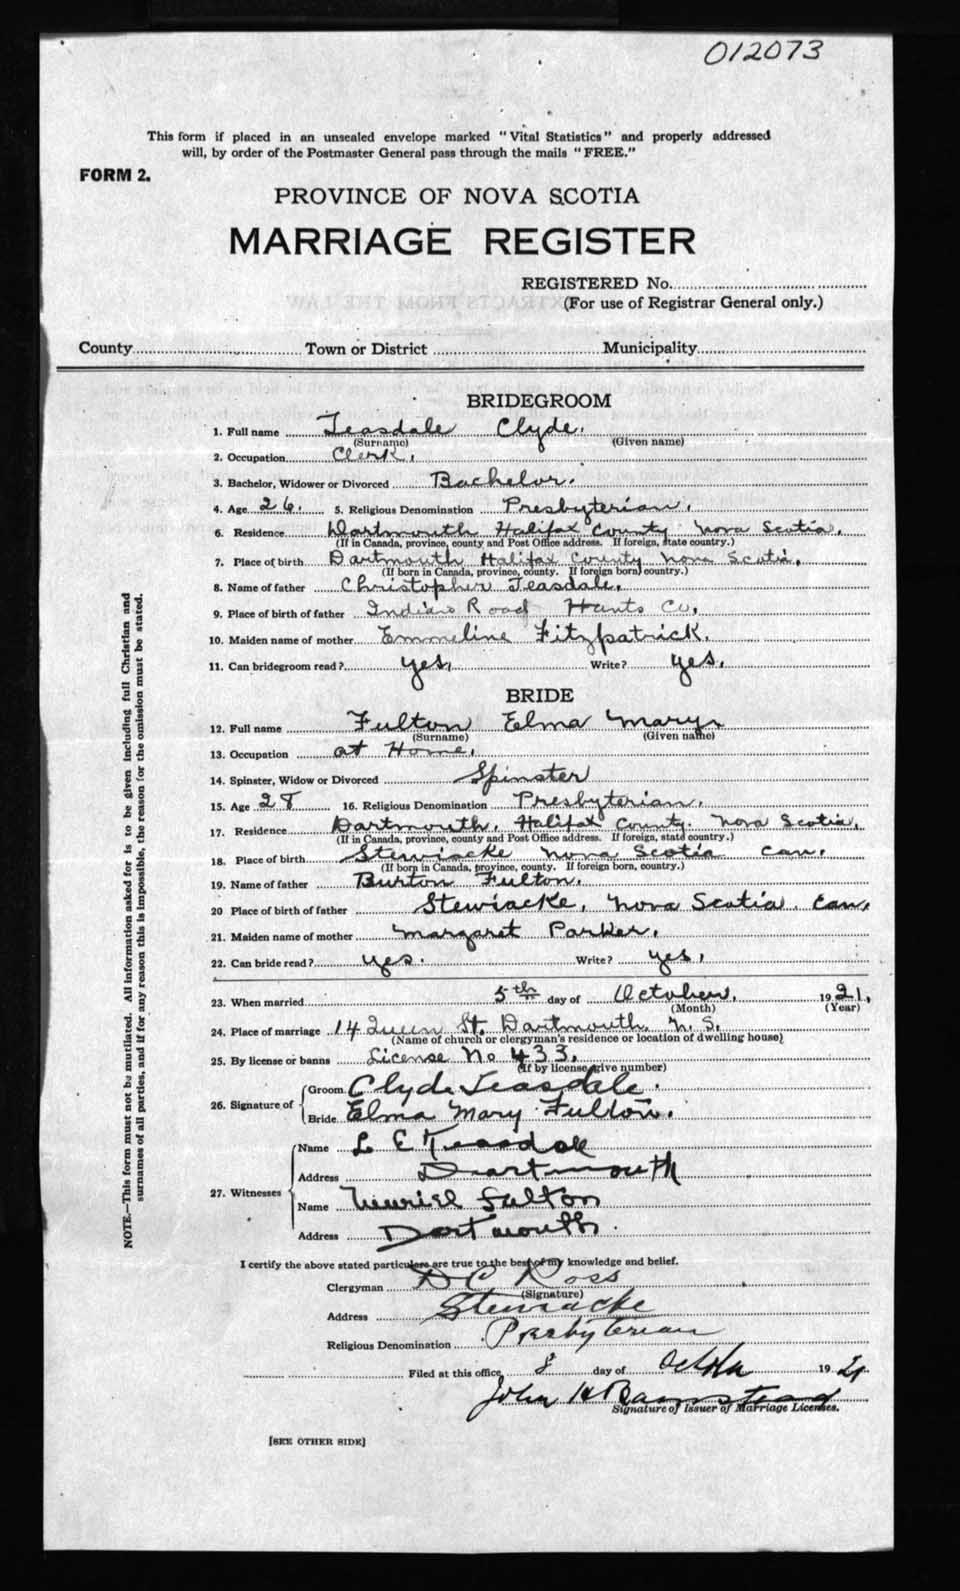 012073
This form if placed in an unsealed envelope marked "Vital Statistics" and properly addressed
will, by order of the Postmaster General pass through the mails "FREE."
FORM 2.
PROVINCE OF NOVA SCOTIA
MARRIAGE REGISTER
REGISTERED No.
(For use of Registrar General only.)
County Town or District Municipality
BRIDEGROOM
1. Full name Teasdale Clyde.
(Surname) (Given name)
2. Occupation Clerk.
3. Bachelor, Widower or Divorced Bachelor.
4. Age 26. 5. Religious Denomination Presbyterian.
6. Residence Dartmouth Halifax County Nova Scotia.
(If in Canada, province, county and Post Office address. If foreign, state country.)
7. Place of birth Dartmouth Halifax County Nova Scotia.
(If born in Canada, province, county. If foreign born, country.)
8. Name of father Christopher Teasdale.
9. Place of birth of father Indian Road Hants Co.
10. Maiden name of mother Emmeline Fitzpatrick.
11. Can bridegroom read? yes. Write? yes.
BRIDE
12. Full name Fulton Elma Mary
(Surname) (Given name)
13. Occupation at Home.
14. Spinster, Widow or Divorced Spinster
15. Age 28 16. Religious Denomination Presbyterian.
17. Residence Dartmouth, Halifax County. Nova Scotia.
(If in Canada, province, county and Post Office address. If foreign, state country.)
18. Place of birth Stewiacke Nova Scotia Can.
(If born in Canada, province, county. If foreign born, country.)
19. Name of father Burton Fulton.
20 Place of birth of father Stewiacke, Nova Scotia. Can.
21. Maiden name of mother Margaret Parker.
22. Can bride read? yes. Write? yes.
23. When married 5th day of October. 1921.
(Month) (Year)
24. Place of marriage 14 Queen St. Dartmouth N.S.
(Name of church or clergyman's residence or location of dwelling house)
25. By license or banns License No 433.
(If by license, give number)
26. Signature of Groom Clyde Teasdale.
Bride Elma Mary Fulton.
27. Witnesses Name L E Teasdale
Address Dartmouth
Name Muriel Fulton
Address Dartmouth.
I certify the above stated particulars are true to the best of my knowledge and belief.
Clergyman D C Ross
(Signature)
Address Stewiacke
Religious Denomination Presbyterian
Filed at this office 8 day of October 1921
John H Bamstead
Signature of Issuer of Marriage Licenses.
[SEE OTHER SIDE]
NOTE.—This form must not be mutilated. All information asked for is to be given including full Christian and
surnames of all parties, and if for any reason this is impossible, the reason for the omission must be stated.